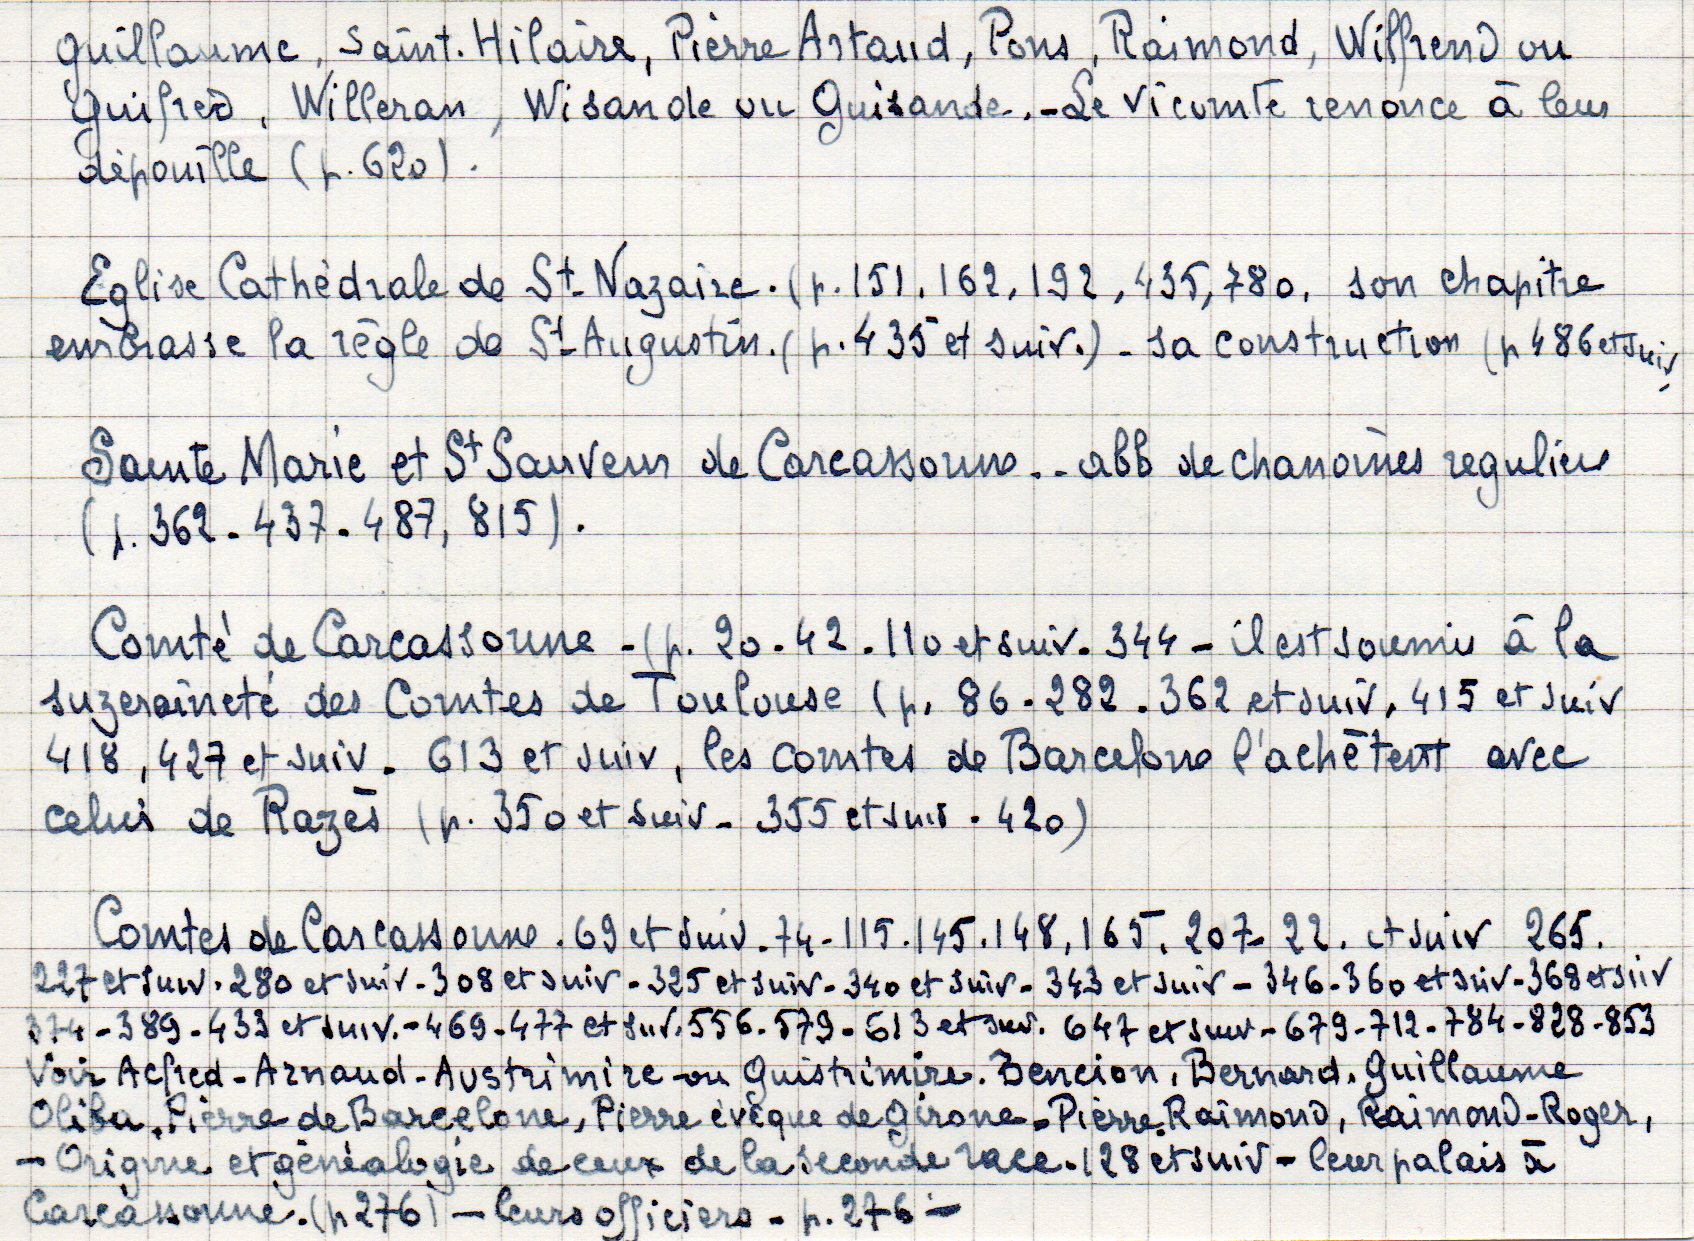 Guillaume, Saint-Hilaire, Pierre Artaud, Pons, Raimond, Wilfrend ou
Guifred, Willeran, Wisande ou Guisande. - Le Vicomte renonce à leur
dépouille (p. 620).
Eglise Cathédrale de St-Nazaire. (p. 151, 162, 192, 435, 780. son chapitre
embrasse la règle de St-Augustin. (p. 435 et suiv.) - sa construction (p 486 et suiv,
Sainte Marie et St Sauveur de Carcassonne.. abb de chanoines reguliers
(p. 362 - 437 - 487, 815).
Comté de Carcassonne - (p. 20 - 42 - 110 et suiv. 344 - il est soumis à la
suzeraineté des Comtes de Toulouse (p. 86 - 282 - 362 et suiv, 415 et suiv
418, 427 et suiv. 613 et suiv, les comtes de Barcelone l'achètent avec
celui de Razès (p. 350 et suiv - 355 et suiv - 420)
Comtes de Carcassonne. 69 et suiv. 74 - 115. 145. 148, 165. 207 - 22. et suiv 265.
227 et suiv. 280 et suiv - 308 et suiv - 325 et suiv - 340 et suiv - 343 et suiv - 346 - 360 et suiv - 368 et suiv
374 - 389 - 433 et suiv. - 469 - 477 et suiv. 556 - 579 - 613 et suiv. 647 et suiv - 679 - 712 - 784 - 828 - 853
Voir Acfred - Arnaud - Austrimire ou Guistrimire. Bencion, Bernard, Guillaume
Oliba, Pierre de Barcelone, Pierre évêque de Girone - Pierre Raimond, Raimond-Roger,
- Origine et généalogie de ceux de la seconde race. 128 et suiv - leur palais à
Carcassonne. (p 276) - leurs officiers - p. 276 -